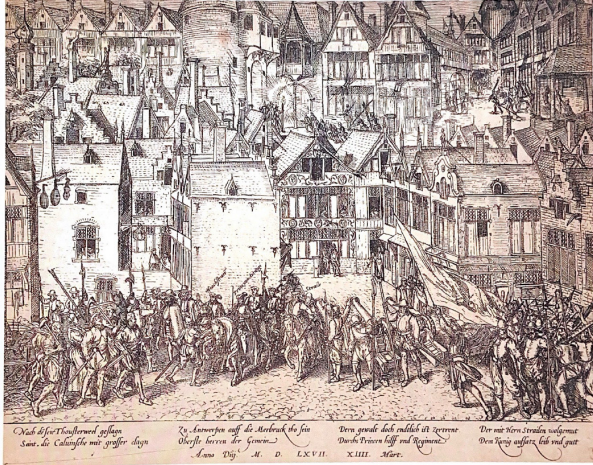 Nach diesem Thousterweel geslagn
Seint die Calvinsche mit grosser clagn
Zu Antwerpen auff die Meerbruck tho sein
Oberste herren der Gemein.
Dern gewalt doch endtlich ist zertrent
Durch Princen hilff vnd Regiment
Der mit Hern Stralen wolgemut
Dem König aufsatz leib vnd gutt
Anno Dñj. M. D. LXVII. XIIII. Mart.